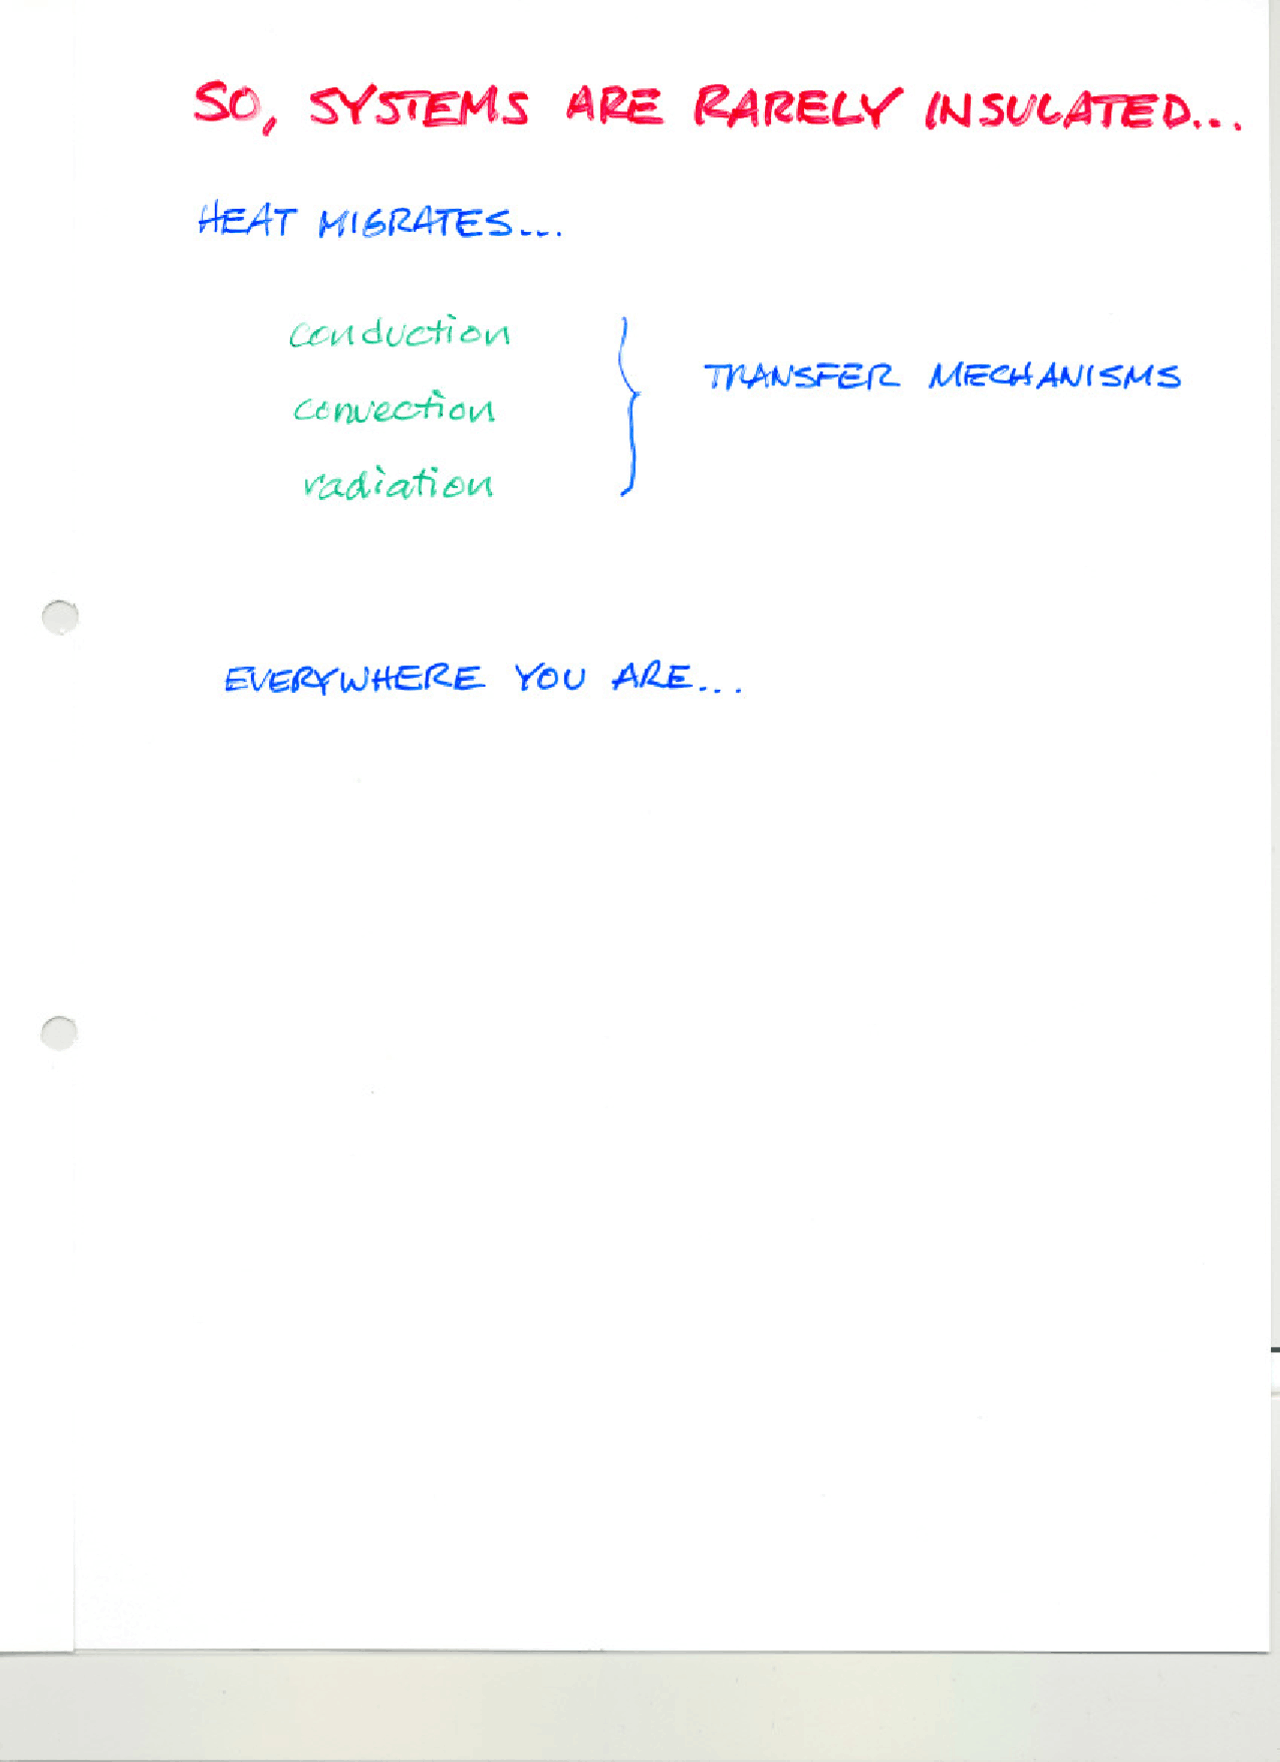 SO, SYSTEMS ARE RARELY INSULATED...
HEAT MIGRATES...
conduction
convection
radiation
TRANSFER MECHANISMS
EVERYWHERE YOU ARE...